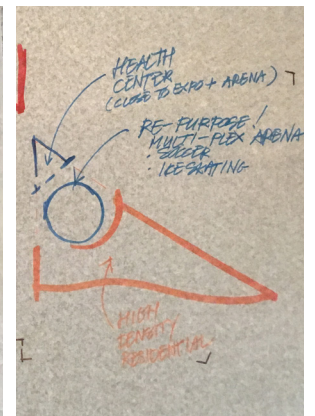 HEALTH
CENTER
(CLOSE TO EXPO + ARENA)
RE-PURPOSE!
MULTI-PLEX ARENA
· SOCCER
· ICE SKATING
HIGH
DENSITY
RESIDENTIAL